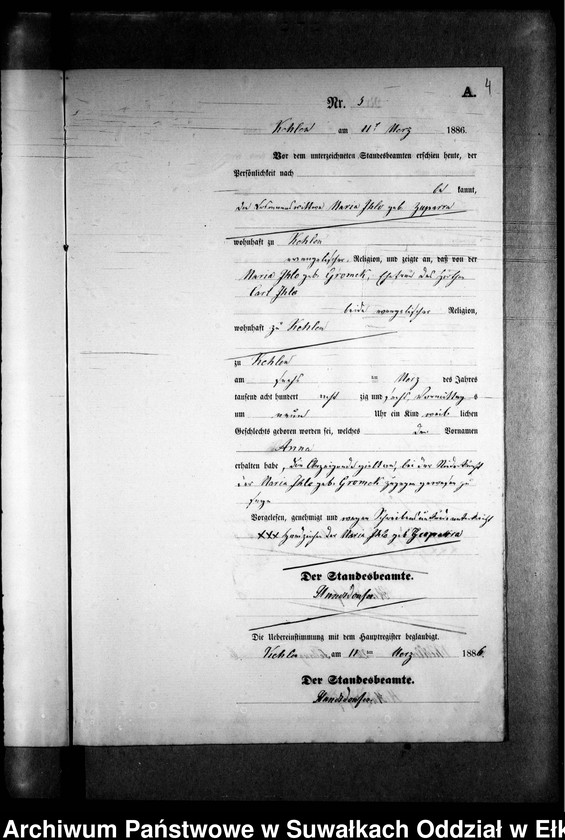 A. 4
Nr. 5
Kehlen am 11t März 1886.
Vor dem unterzeichneten Standesbeamten erschien heute, der
Persönlichkeit nach
be kannt,
die Losmannswittwe Maria Jhlo geb.
wohnhaft zu Kehlen
evangelischer Religion, und zeigte an, daß von der
Maria Jhlo geb. Gromek, Ehefrau des Hirten
Carl Jhlo
beide evangelischer Religion,
wohnhaft zu Kehlen
zu Kehlen
am sechs ten März des Jahres
tausend acht hundert acht zig und sechs, Vormittag s
um neun Uhr ein Kind weib lichen
Geschlechts geboren worden sei, welches den Vornamen
Anna
erhalten habe, die Anzeigende erklärte, bei der Niederkunft
der Maria Jhlo geb. Gromek zugegen gewesen zu
sein
Vorgelesen, genehmigt und wegen Schreibensunkunde unterkreuzt
XXX Handzeichen der Maria Jhlo geb.
Der Standesbeamte.
Die Uebereinstimmung mit dem Hauptregister beglaubigt.
Kehlen am 11 ten März 1886.
Der Standesbeamte.
Archiwum Państwowe w Suwałkach Oddział w Ełk